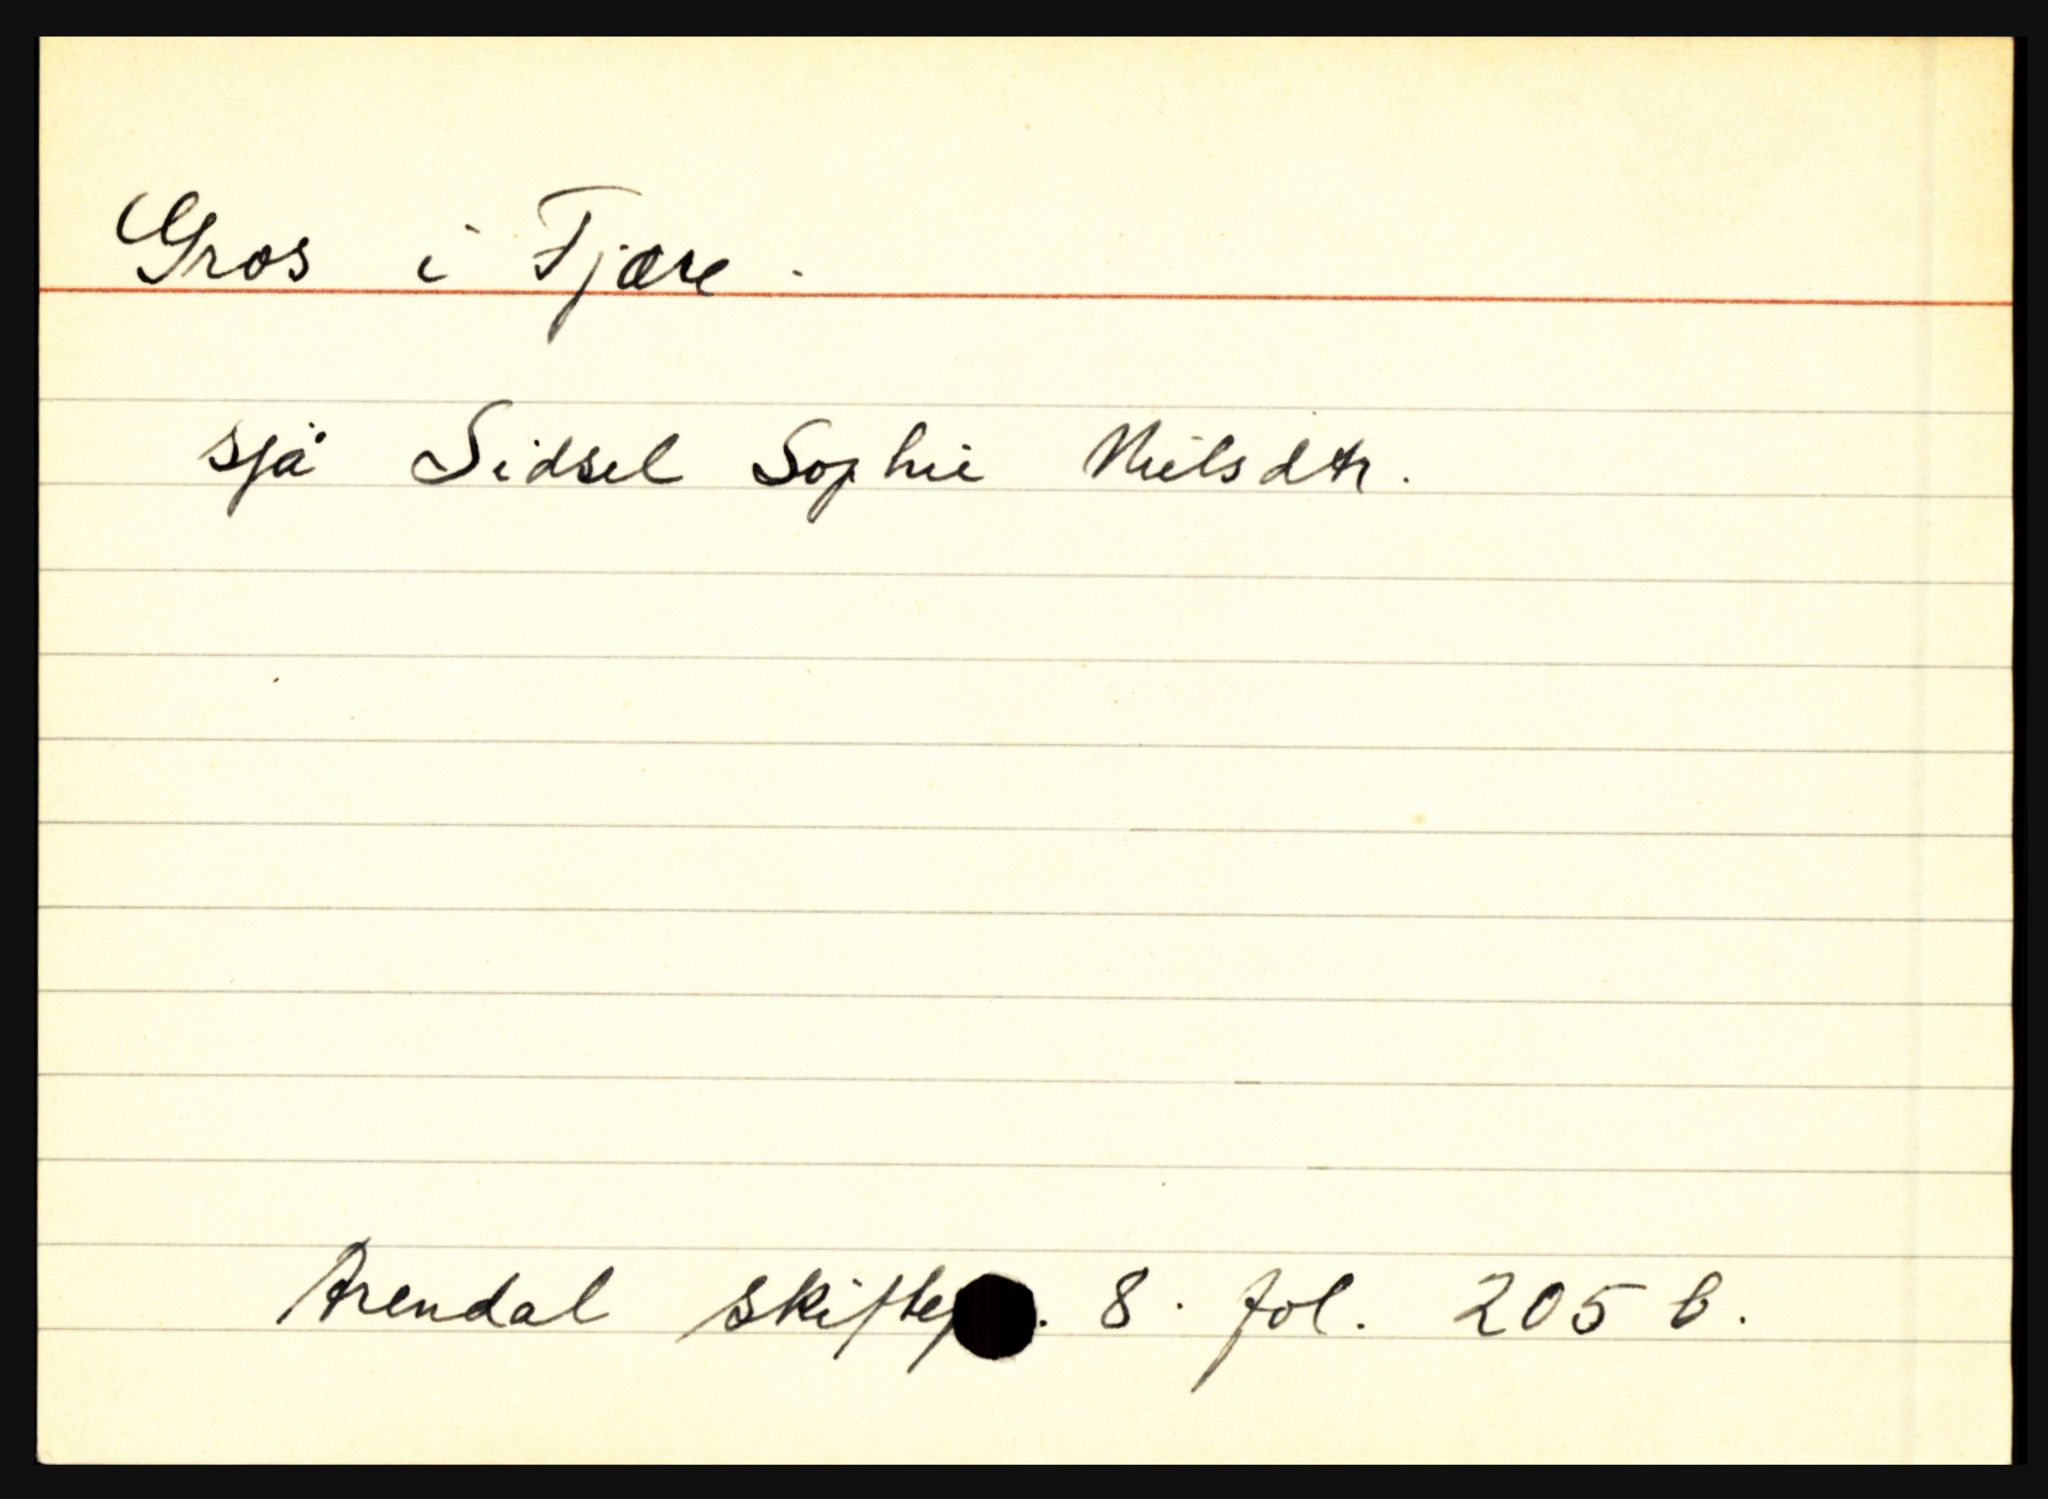 Gros i Fjære.
sjå Sidsel Sophie Nielsdtr.
Arendal 8. fol. 205 b.